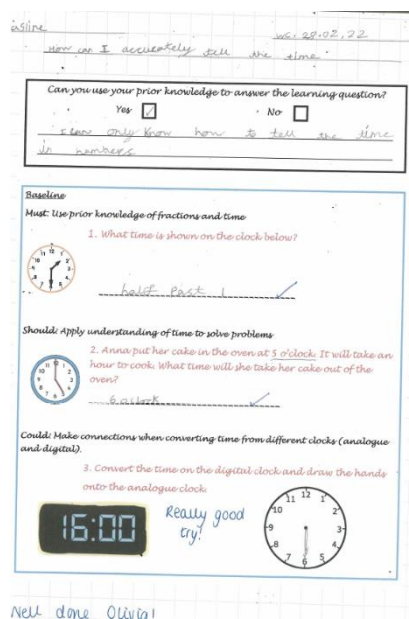 asline
wc. 28.02.22
How can I accurately tell the time
Can you use your prior knowledge to answer the learning question?
Yes ✓ No
I can only know how to tell the time
in numbers
Baseline
Must: Use prior knowledge of fractions and time
1. What time is shown on the clock below?
11 12 1
10 2
9 3
8 4
7 6 5
half Past 1
Should: Apply understanding of time to solve problems
2. Anna put her cake in the oven at 5 o'clock. It will take an
hour to cook. What time will she take her cake out of the
oven?
11 12 1
10 2
9 3
8 4
7 6 5
6 oclock
Could: Make connections when converting time from different clocks (analogue
and digital).
3. Convert the time on the digital clock and draw the hands
onto the analogue clock.
16:00
Really good
try!
11 12 1
10 2
9 3
8 4
7 6 5
Well done Olivia!